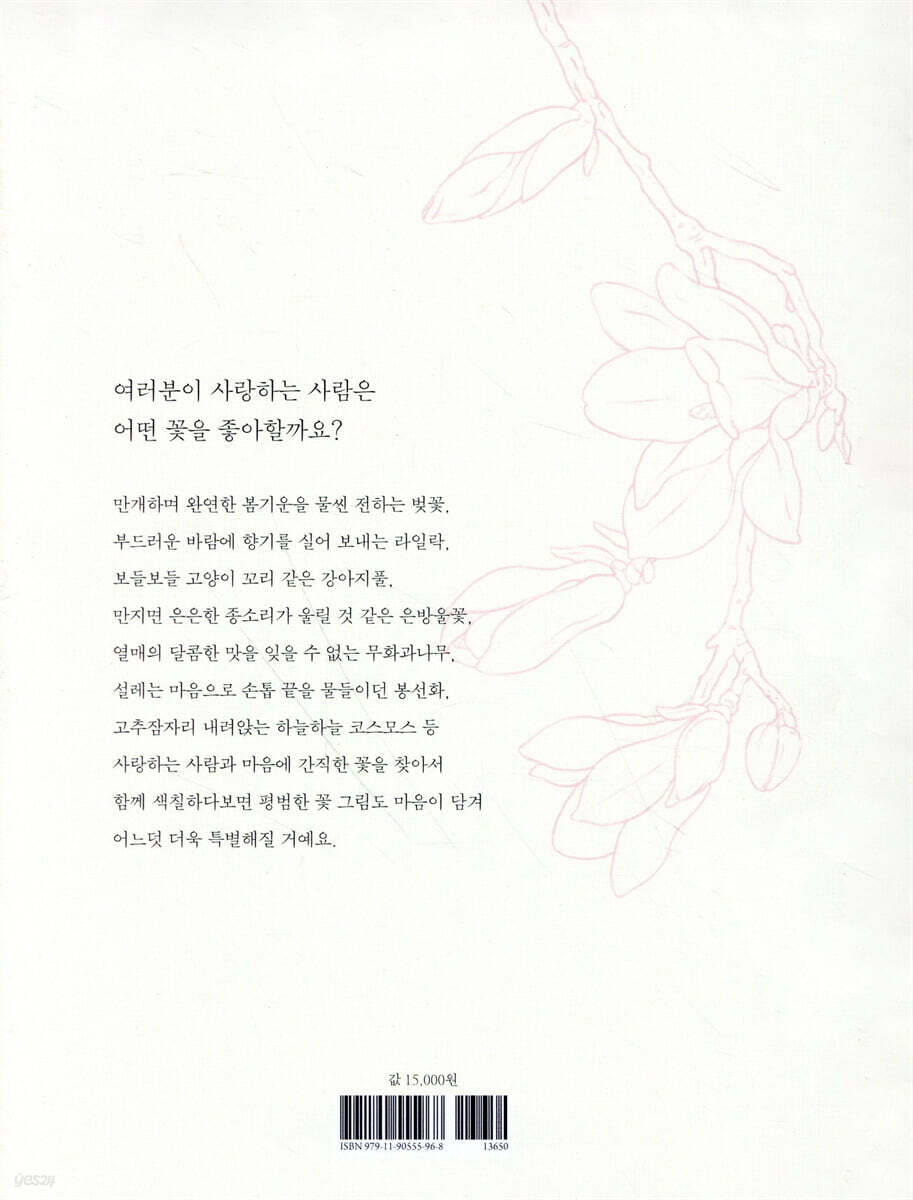 여러분이 사랑하는 사람은
어떤 꽃을 좋아할까요?
만개하며 완연한 봄기운을 물씬 전하는 벚꽃,
부드러운 바람에 향기를 실어 보내는 라일락,
보들보들 고양이 꼬리 같은 강아지풀,
만지면 은은한 종소리가 울릴 것 같은 은방울꽃,
열매의 달콤한 맛을 잊을 수 없는 무화과나무,
설레는 마음으로 손톱 끝을 물들이던 봉선화,
고추잠자리 내려앉는 하늘하늘 코스모스 등
사랑하는 사람과 마음에 간직한 꽃을 찾아서
함께 색칠하다보면 평범한 꽃 그림도 마음이 담겨
어느덧 더욱 특별해질 거예요.
값 15,000원
ISBN 979-11-90555-96-8 13650
yes24